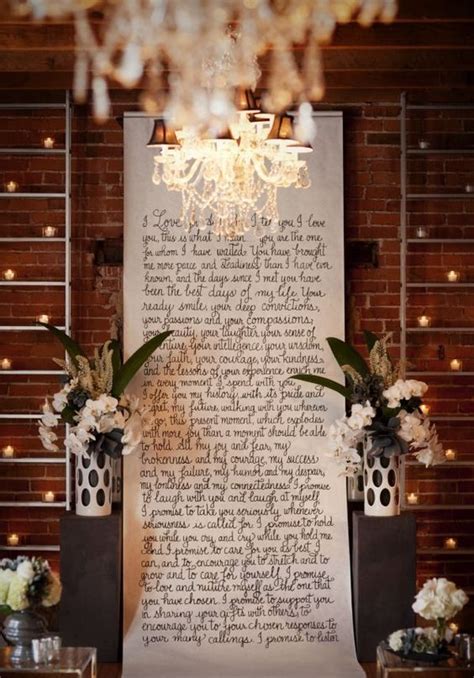 I Love you I love
you, this is what I mean you are the one
for whom I have waited. You have brought
me more peace and steadiness than I have ever
known, and the days since I met you have
been the best days of my life. Your
ready smile, your deep convictions,
your passions and your compassions
your beauty, your laughter, your sense of
adventure, your intelligence, your wisdom,
your faith, your courage, your kindness
and the lessons of your experience enrich me
in every moment I spend with you.
I offer you my history, with its pride and
regret, my future, walking with you wherever
you go, this present moment, which explodes
with more joy than a moment should be able
to hold. All my joy and fear, my
brokenness and my courage, my success
and my failure, my humor and my despair,
my fondness and my connectedness. I promise
to laugh with you and laugh at myself
I promise to take you seriously whenever
seriousness is called for. I promise to hold
you while you cry, and cry while you hold
me. And I promise to care for you as best I
can, and to encourage you to stretch and to
grow and to care for yourself. I promise
to love and nurture myself as the one that
you have chosen. I promise to support you
in sharing your gifts with others, to
encourage you to your chosen responses to
your many callings. I promise to listen